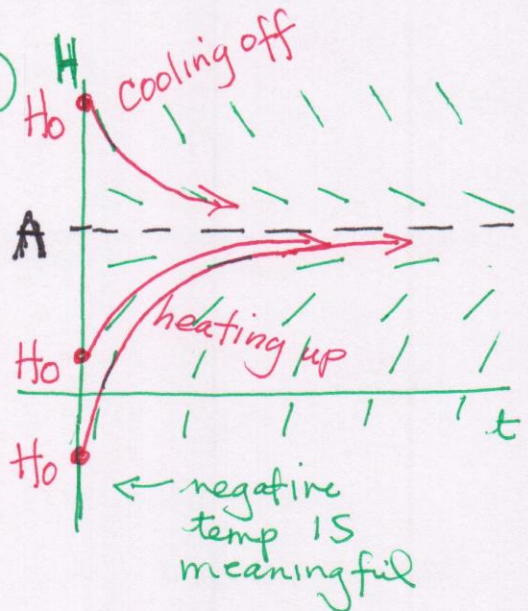 )
H
cooling off
Ho
A
heating up
Ho
t
Ho
← negative
temp IS
meaningful